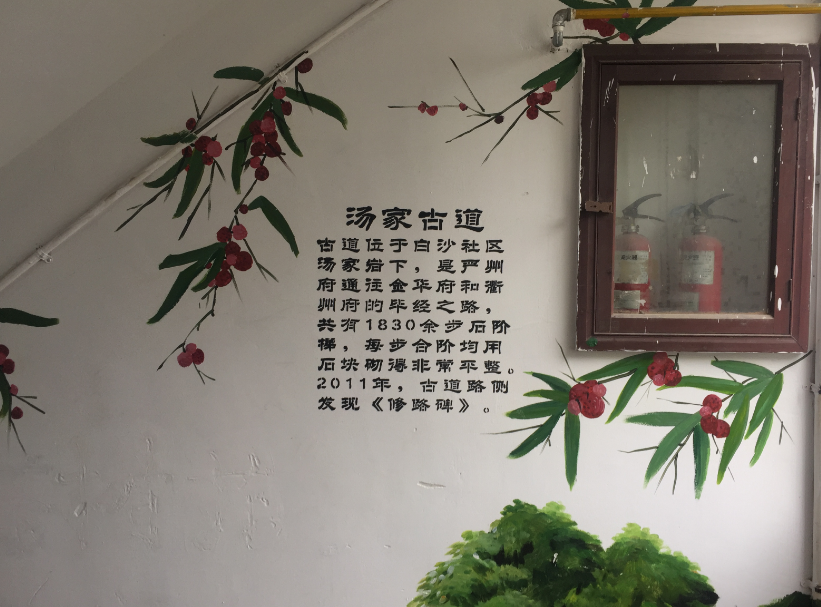 汤家古道
古道位于白沙社区
汤家岩下，是严州
府通往金华府和衢
州府的毕经之路，
共有1830余步石阶
梯，每步台阶均用
石块砌得非常平整。
2011年，古道路侧
发现《修路碑》。